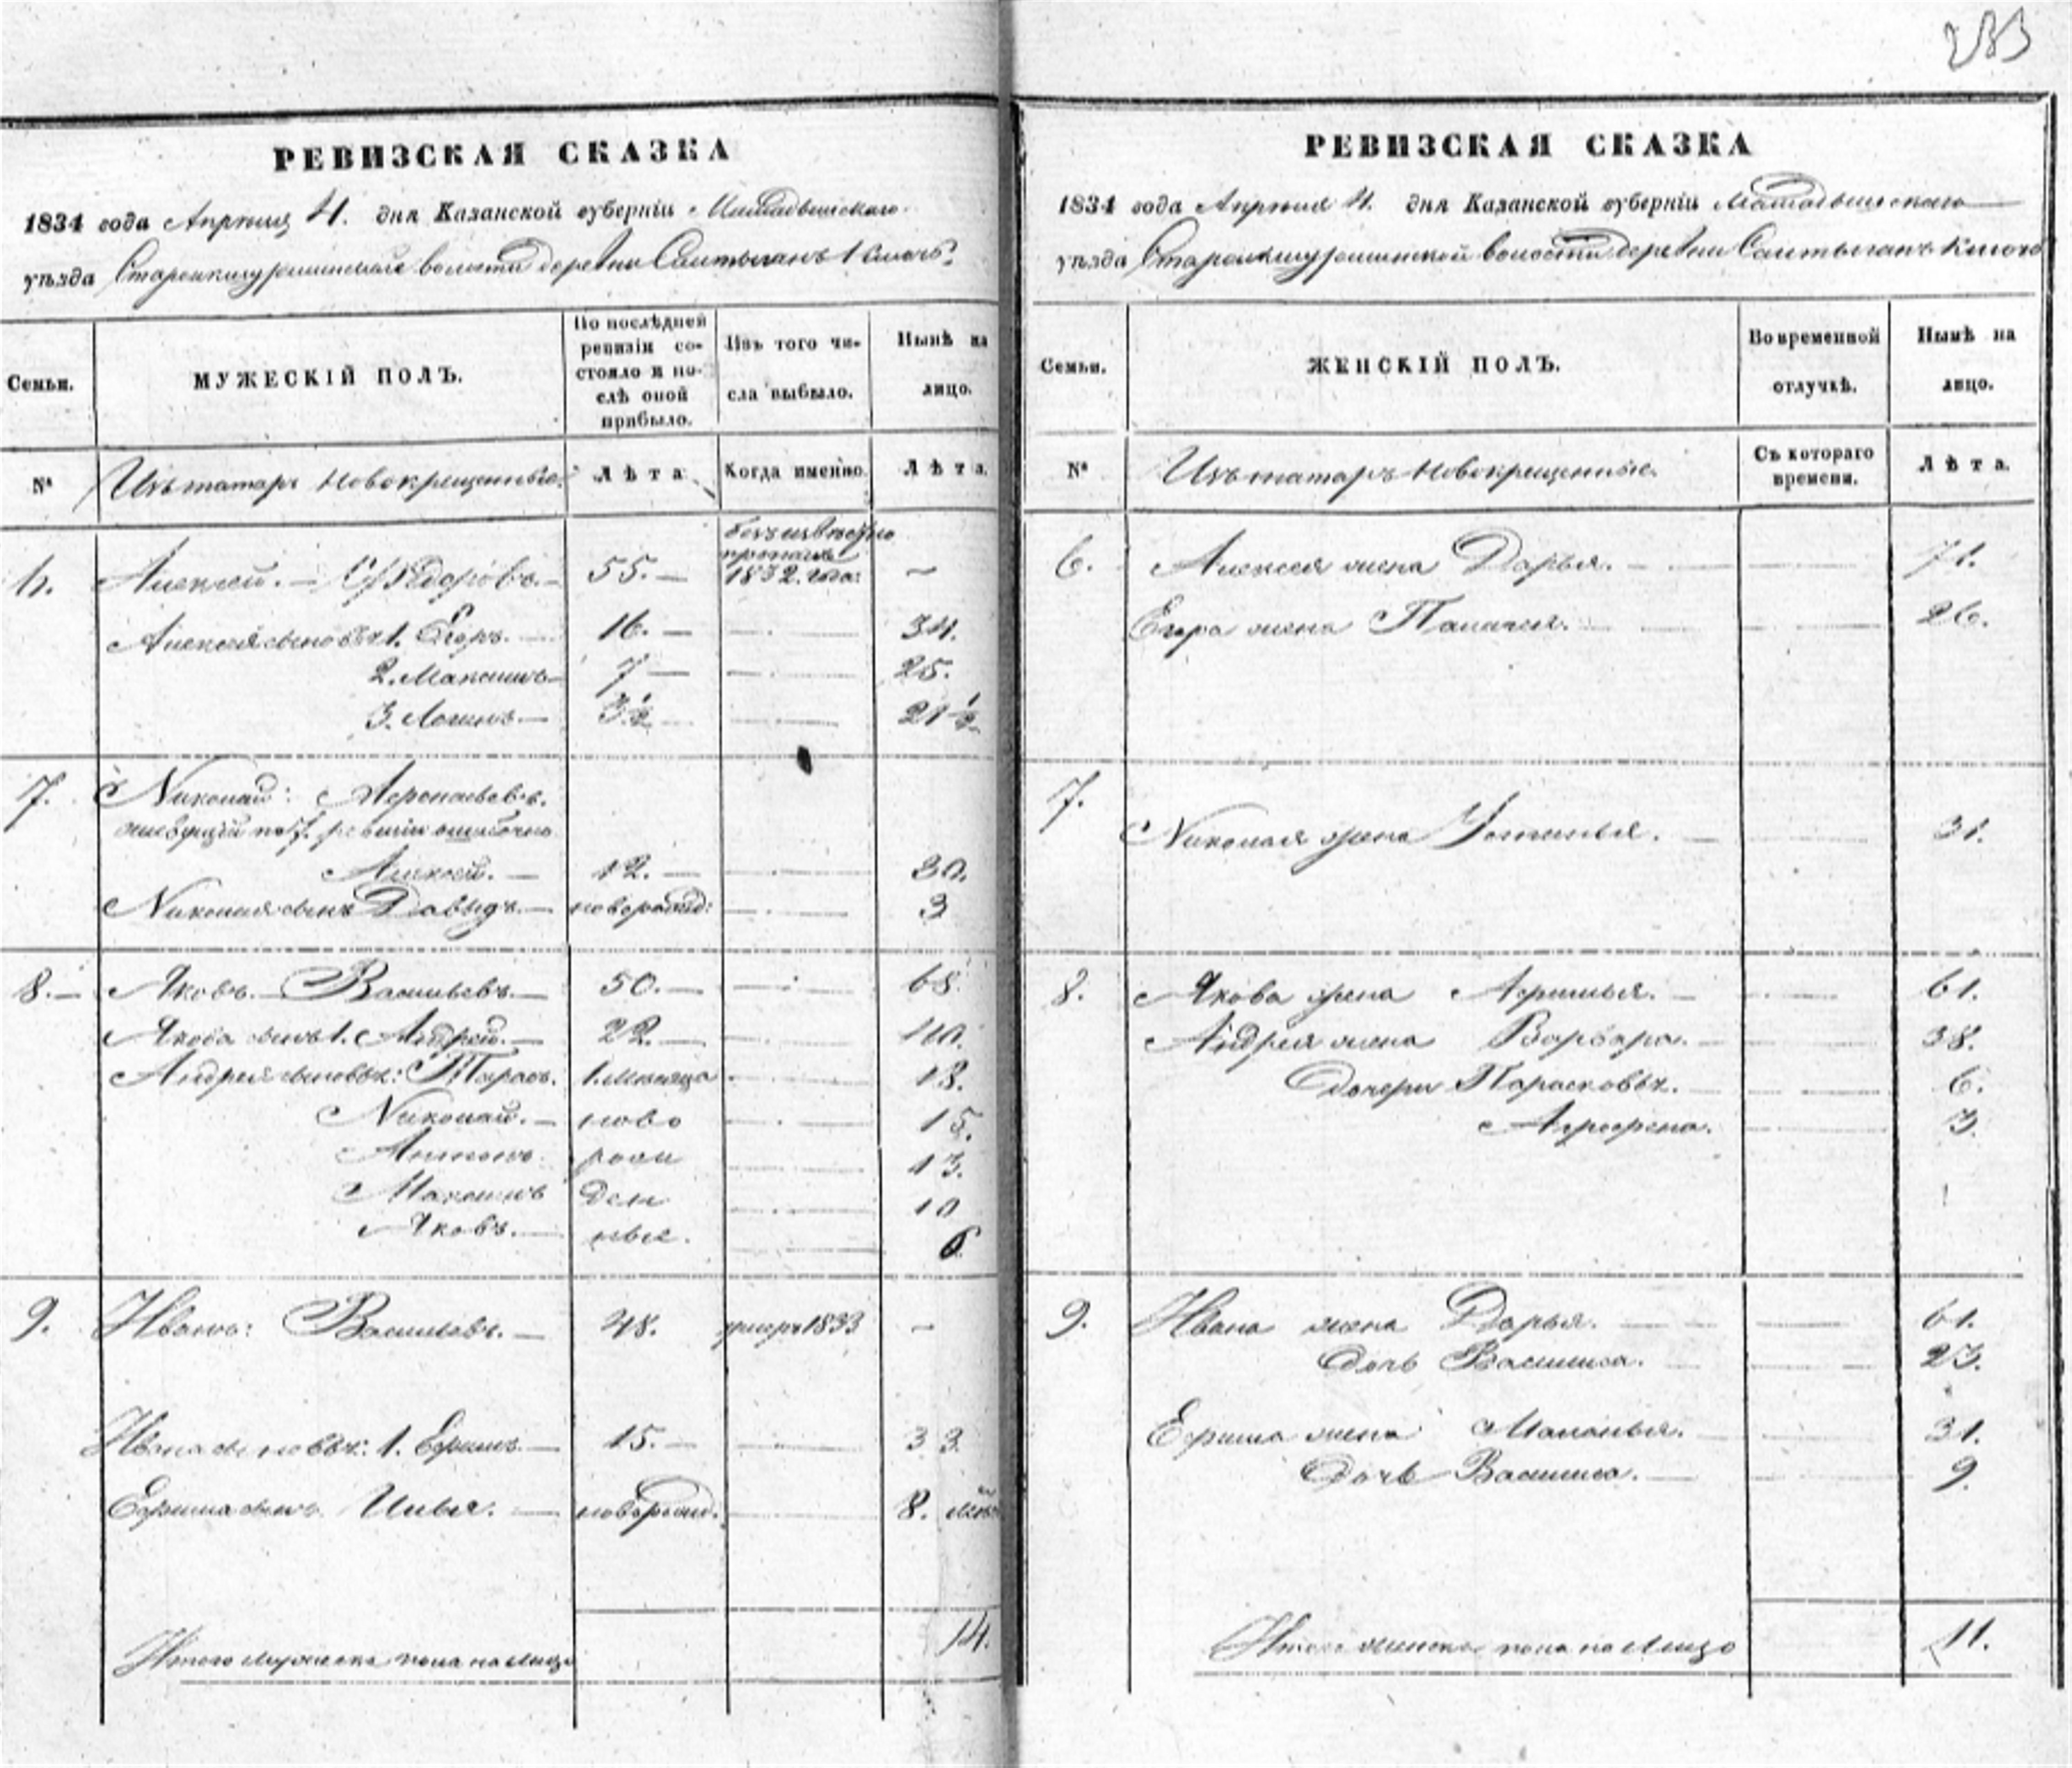 233
РЕВИЗСКАЯ СКАЗКА
1834 года Апреля 4. дня Казанской губерніи Мамадышскаго
уѣзда волости деревни Саитыганъ Ключь
Семьи.
МУЖЕСКІЙ ПОЛЪ.
По послѣдней ревизіи состояло и послѣ оной прибыло.
Изъ того числа выбыло.
Нынѣ на лицо.
№
Изъ татаръ новокрещенные.
Лѣта
Когда именно.
Лѣта.
6. Алексей. — Ѳедоровъ. — 55. — безъизвѣстно пропалъ 1832. года —
Алексея сыновья 1. Егоръ. 16. — 34.
2. Максимъ — 7 — 25.
3. Логинъ. — 3½ 21½
7. Николай: Аѳонасьевъ.
по 7. ревизіи ошибочно
Алексей. — 12. — 30.
Николая сынъ Давыдъ. — новорожд: 3
8. — Яковъ. — Васильевъ. — 50. — 68.
Якова сынъ 1. Андрей. — 22. — 40.
Андрея сыновья: Тарасъ. 1. месяца 18.
Николай. — ново 15.
рож 13.
Максимъ ден 10
Яковъ. — ные. 6
9. Иванъ: Васильевъ. — 48. умеръ 1833 —
Ивана сыновья: 1. Ефимъ. — 15. — 33.
Ефима сынъ Илья. — новорожд. 8. мѣс
Итого мужеска пола на лицо 14.
РЕВИЗСКАЯ СКАЗКА
1834 года Апреля 4. дня Казанской губерніи Мамадышскаго
уѣзда волости деревни Саитыганъ Ключь
Семьи.
ЖЕНСКІЙ ПОЛЪ.
Во временной отлучкѣ.
Нынѣ на лицо.
№
Изъ татаръ новокрещенные.
Съ котораго времени.
Лѣта.
6. Алексея жена Дарья. 71.
Егора жена Палагея. 26.
7. Николая жена Устинья. 31.
8. Якова жена Афимья. 61.
Андрея жена Варвара. 38.
Дочери Парасковья. 6.
Агрофена. 3.
9. Ивана жена Дарья. 61.
Дочь Василиса. 23.
Ефима жена Маланья. 31.
Дочь Василиса. 9.
Итого женска пола на лицо 11.